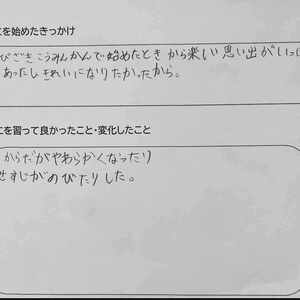 を始めたきっかけ
びざきこうみんかんで始めたときから楽しい思い出がいっ
あったしきれいになりたかったから。
を習って良かったこと・変化したこと
からだがやわらかくなったり
せすじがのびたりした。